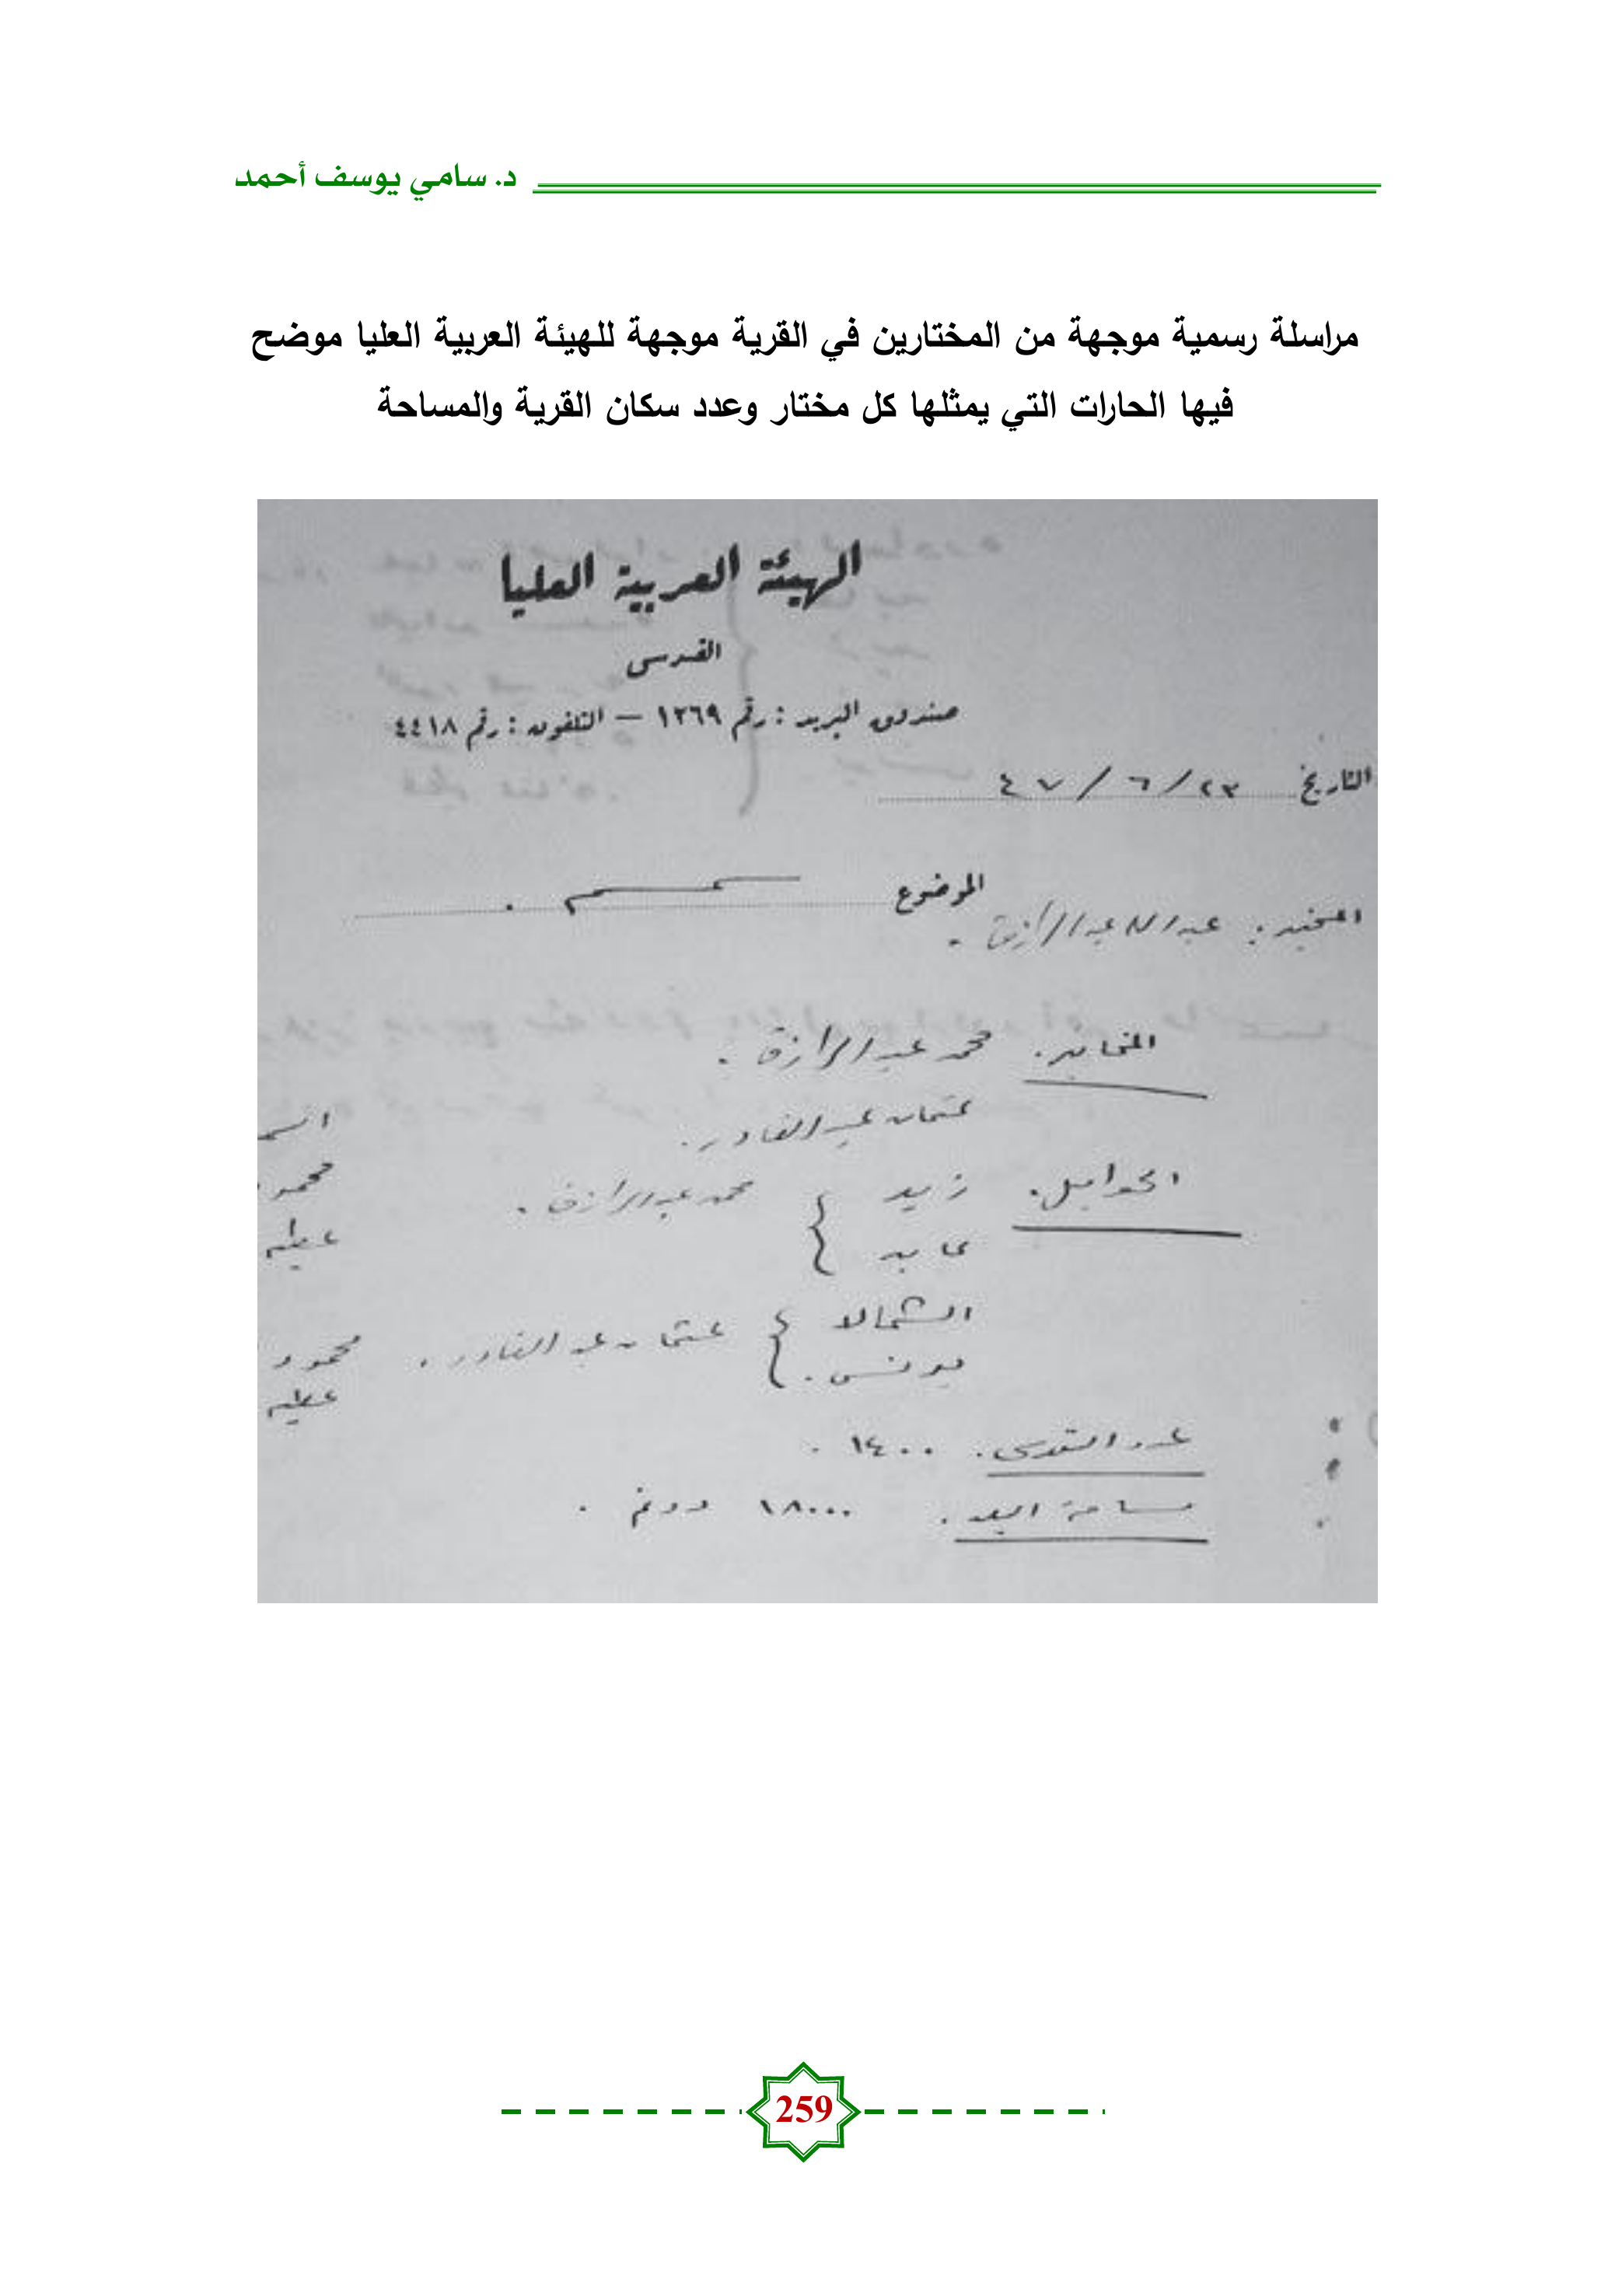 د. سامي يوسف أحمد
مراسلة رسمية موجهة من المختارين في القرية موجهة للهيئة العربية العليا موضح
فيها الحارات التي يمثلها كل مختار وعدد سكان القرية والمساحة
الهيئة العربية العليا
القدس
صندوق البريد : رقم ١٢٦٩ — التلفون : رقم ٤٤١٨
التاريخ ٢٣ / ٦ / ٤٧
الموضوع
عبد الله عبد الرازق .
المخاتير . محمد عبد الرازق .
عثمان عبد القادر .
الحمايل . زيد } محمد عبد الرازق .
عابد
الشمالا } عثمان عبد القادر .
يونس .
محمود
عطيه
عدد النفوس . ١٤٠٠ .
مساحة البلد . ١٨٠٠٠ دونم .
259